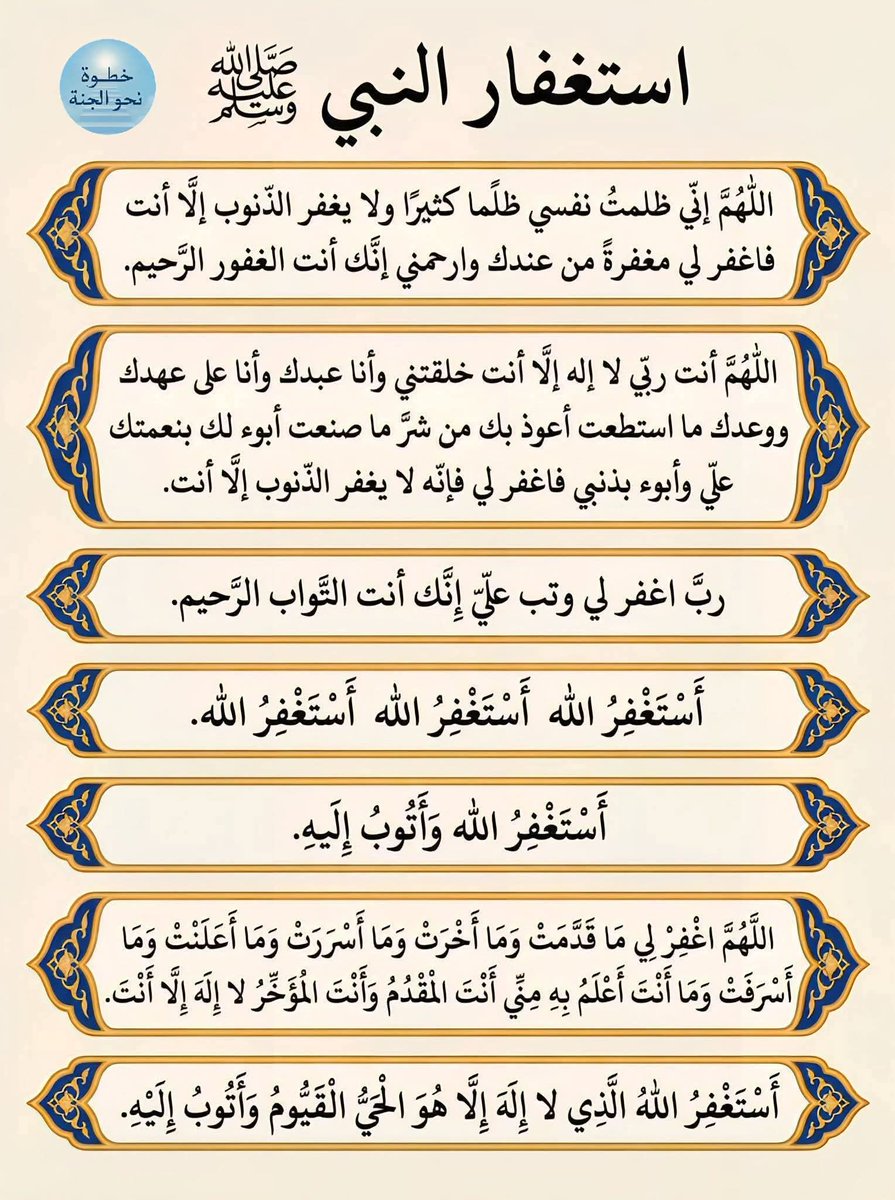 استغفار النبي ﷺ
خطوة
نحو الجنة
اللّٰهُمَّ إنّي ظلمتُ نفسي ظلًما كثيرًا ولا يغفر الذّنوب إلَّا أنت
فاغفر لي مغفرةً من عندك وارحمني إنَّك أنت الغفور الرَّحيم.
اللّٰهُمَّ أنت ربّي لا إله إلَّا أنت خلقتني وأنا عبدك وأنا على عهدك
ووعدك ما استطعت أعوذ بك من شرَّ ما صنعت أبوء لك بنعمتك
علّي وأبوء بذنبي فاغفر لي فإنّه لا يغفر الذّنوب إلَّا أنت.
ربَّ اغفر لي وتب علّيّ إِنَّك أنت التَّواب الرَّحيم.
أَسْتَغْفِرُ الله أَسْتَغْفِرُ الله أَسْتَغْفِرُ الله.
أَسْتَغْفِرُ الله وَأَتُوبُ إِلَيهِ.
اللَّهُمَّ اغْفِرْ لِي مَا قَدَّمَتْ وَمَا أَخْرَتْ وَمَا أَسْرَرَتْ وَمَا أَعَلَنْتْ وَمَا
أَسْرَفَتْ وَمَا أَنْتَ أَعْلَمُ بِهِ مِنِّي أَنْتَ الْمْقْدُمُ وَأَنْتَ الْمُؤَخِّرُ لا إِلَهَ إِلَّا أَنْتَ.
أَسْتَغْفِرُ اللهُ الَّذِي لا إِلَهَ إِلَّا هُوَ الْحَيُّ الْقَيُّومُ وَأَتُوبُ إِلَيْهِ.